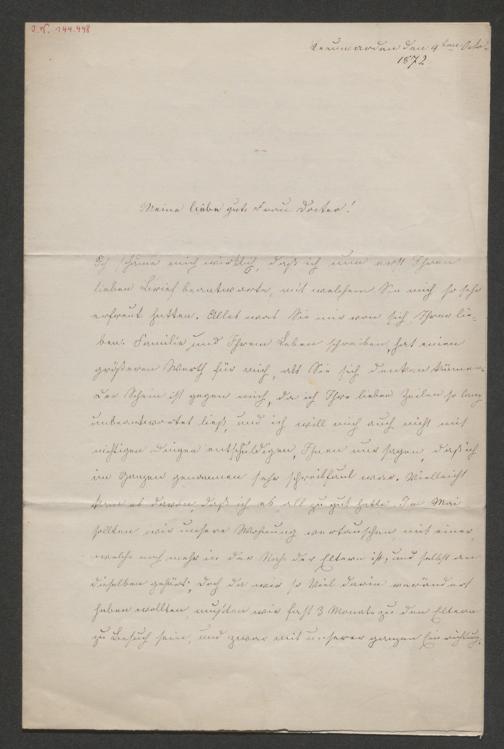 J.N. 144.448
Leeuwarden den 9ten Octo
1872
Meine liebe gute Frau Doctor!
Ich schäme mich wirklich, daß ich nun erst Ihren
lieben Brief beantworte, mit welchem Sie mich so sehr
erfreut hatten. Alles was Sie mir von sich, Ihrer lie-
ben Familie und Ihrem Leben schreiben, hat einen
größeren Werth für mich, als Sie sich denken können.
Der Schein ist gegen mich, da ich Ihre lieben Zeilen so lang
unbeantwortet ließ, und ich will mich auch nicht mit
nichtigen Dingen entschuldigen, Ihnen nur sagen, daß ich
im Ganzen genommen sehr schreibfaul war. Vielleicht
kam es davon, daß ich es all zu gut hatte. Im Mai
sollten wir unsere Wohnung vertauschen mit einer,
welche noch mehr in der Nähe der Eltern ist, und selbst an
dieselben gehört. Doch da wir so viel darin verändert
haben wollten, mußten wir fast 3 Monate zu den Eltern
zu Besuch sein, und zwar mit unserer ganzen Einrichtung.